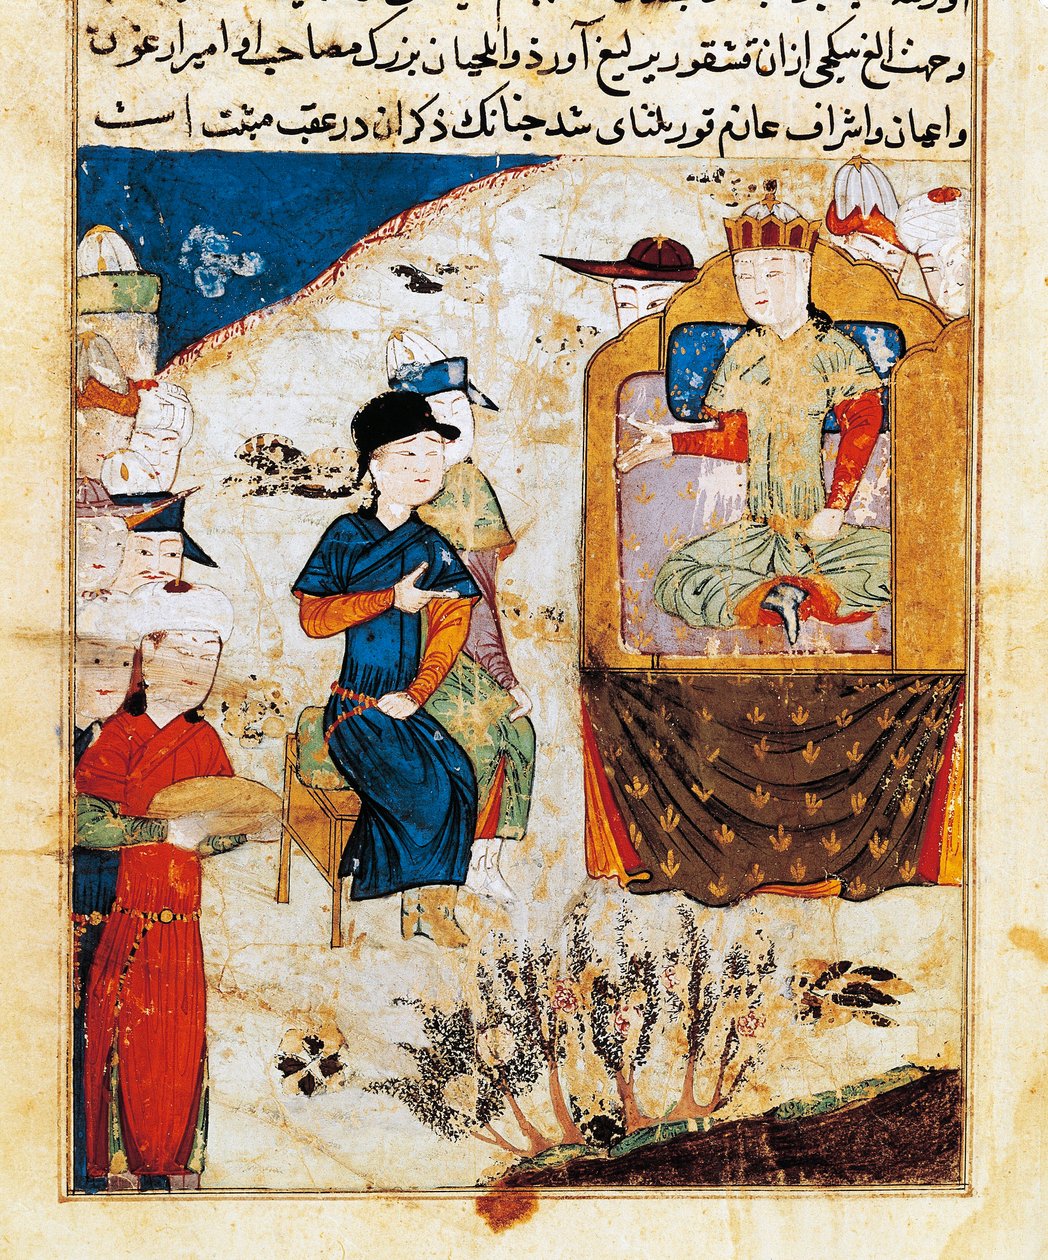 وجهت الغ بیتکچی ازان قشقور یرلیغ آورذ وایلچیان بزرک مصاحب او امیر ارغون
واعیان واشراف عازم قوریلتای شد جنانک ذکر ان در عقب مثبت است